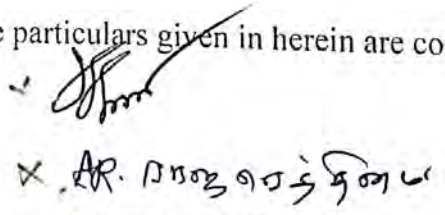 e particulars given in herein are co
AR. ராஜ ரெத்தினம்